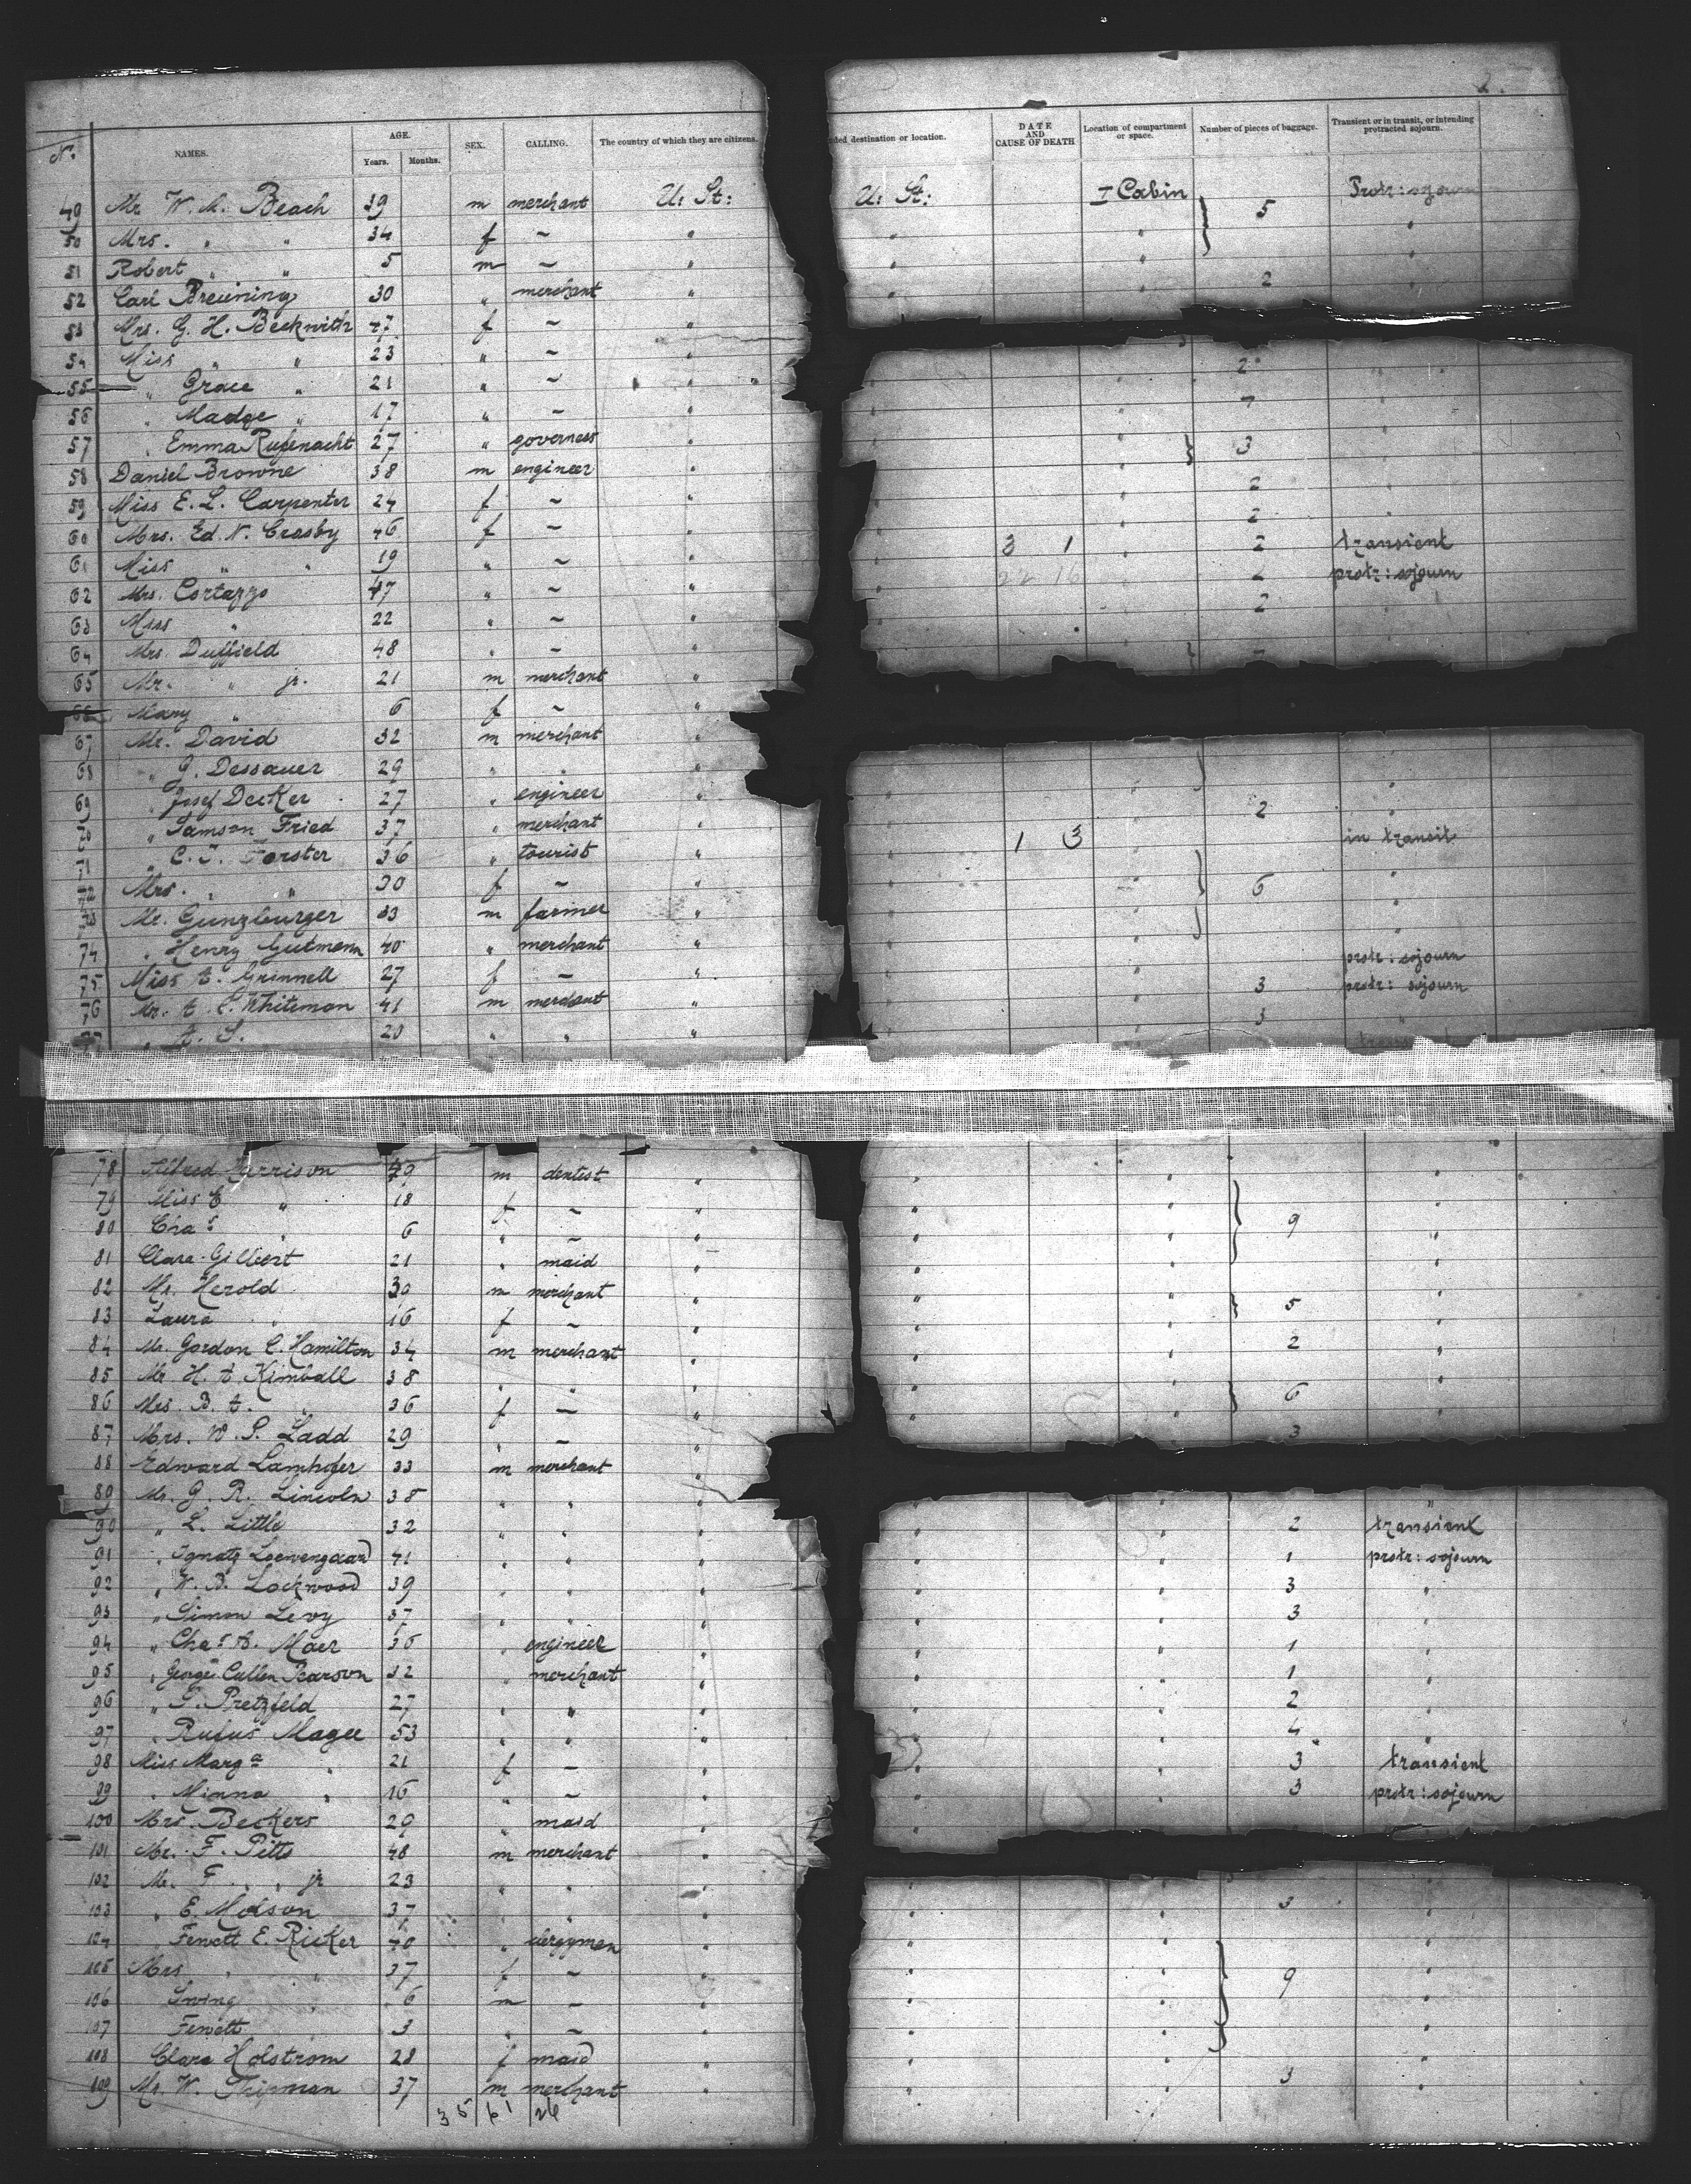 2.
No. NAMES. AGE. Years. Months. SEX. CALLING. The country of which they are citizens. ded destination or location. DATE AND CAUSE OF DEATH Location of compartment or space. Number of pieces of baggage. Transient or in transit, or intending protracted sojourn.
49 Mr W. A. Beach 39 m merchant U. St: U. St: I Cabin 5 Protr: sojourn
50 Mrs. " " 34 f ~ "
51 Robert " " 5 m ~ "
52 Carl Breuning 30 " merchant " 2
53 Mrs. G. H. Beckwith 47 f ~ "
54 Miss " " 23 " ~ " 2
55 " Grace " 21 " ~ "
56 " Madge " 17 " ~ "
57 " Emma Rufenacht 27 " governess " 3
58 Daniel Browne 38 m engineer "
59 Miss E. L. Carpenter 24 f ~ " 2
60 Mrs. Ed. N. Crosby 46 f ~ " 2
61 Miss " " 19 " ~ " 3 1 2 transient
62 Mrs. Cortazzo 47 " ~ " protr: sojourn
63 Miss " 22 " ~ " 2
64 Mrs. Duffield 48 " ~ "
65 Mr. " jr. 21 m merchant "
66 Mary " 6 f ~ "
67 Mr. David 32 m merchant "
68 " G. Dessauer 29 " " "
69 " Josef Decker 27 " engineer " 2
70 " Samson Fried 37 " merchant " 1 3 in transit
71 " C. J. Forster 36 " tourist "
72 Mrs. " " 30 f ~ " 6
73 Mr. Gunzburger 33 m farmer "
74 " Henry Gutmann 40 " merchant " protr: sojourn
75 Miss A. Grinnell 27 f ~ " 3 protr: sojourn
76 Mr. A. C. Whiteman 41 m merchant " 3
77 " A. S. 20 " " "
78 Alfred Harrison 49 m dentist "
79 Miss E " 18 f ~ "
80 Chas " 6 " ~ " 9
81 Clara Gilbert 21 " maid "
82 Mr. Herold 30 m merchant "
83 Laura " 16 f ~ " 5
84 Mr. Gordon C. Hamilton 34 m merchant " 2
85 Mr H. A. Kimball 38 " " "
86 Mrs. B. A. " 36 f ~ " 6
87 Mrs. W. S. Ladd 29 " ~ " 3
88 Edward 33 m merchant "
89 Mr. G. R. Lincoln 38 " " "
90 " L. Little 32 " " " 2 transient
91 " Ignatz Loewengaard 41 " " " 1 protr: sojourn
92 " W. B. Lockwood 39 " " " 3 "
93 " Simon Levy 37 " " " 3
94 " Chas A. Maer 36 " engineer " 1 "
95 " George Cullen Pearson 32 " merchant " 1 "
96 " S. Pretzfeld 27 " " " 2
97 " Rufus Magee 53 " " " 4 "
98 Miss Marga " 21 f ~ 3 transient
99 " Minna " 16 " ~ " 3 protr: sojourn
100 Mrs. Beckers 29 " maid "
101 Mr. F. Pitts 48 m merchant "
102 Mr. F. " jr 23 " " "
103 " E. Molson 37 " " " 3
104 " Fewett E. Ricker 40 " clergyman "
105 Mrs " " 37 f ~ " 9
106 Irving " 6 m ~ "
107 Fewett 3 " ~ "
108 Clara Holstrom 28 f maid "
109 Mr. W. Shipman 37 m merchant " 3
35 61 26